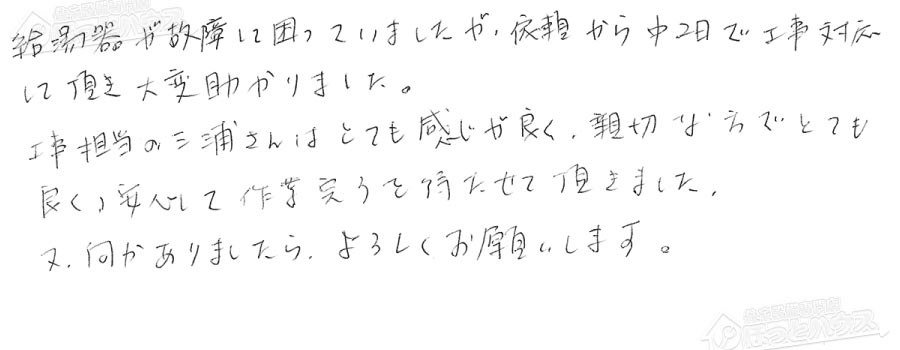 給湯器が故障して困っていましたが、依頼から中2日で工事対応
して頂き大変助かりました。
工事担当の三浦さんはとても感じが良く、親切な方でとても
良く、安心して作業完了を待たせて頂きました。
又、何かありましたら、よろしくお願いします。
ほっとハウス